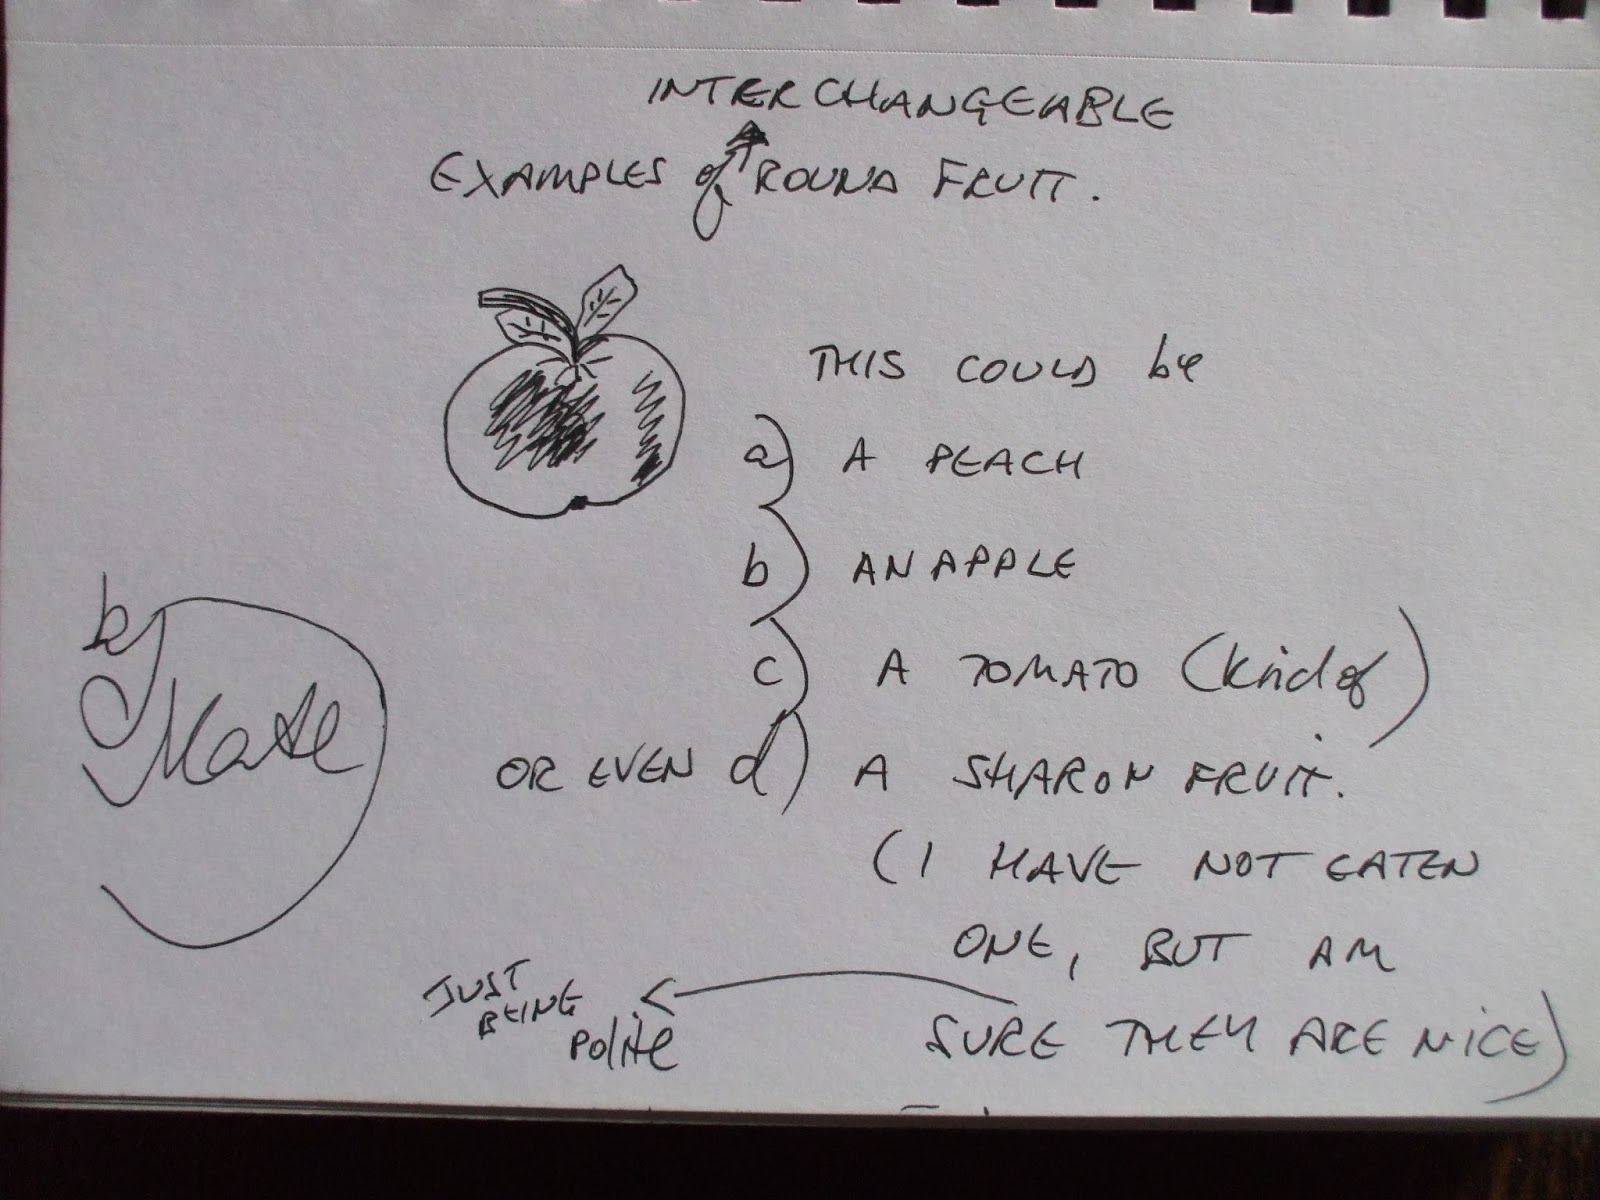 INTERCHANGEABLE
EXAMPLES of ROUND FRUIT.
THIS COULD be
a) A PEACH
b) AN APPLE
c) A TOMATO (kind of)
OR EVEN d) A SHARON FRUIT.
(I HAVE NOT EATEN
ONE, BUT AM
SURE THEY ARE NICE)
JUST
BEING
polite
by